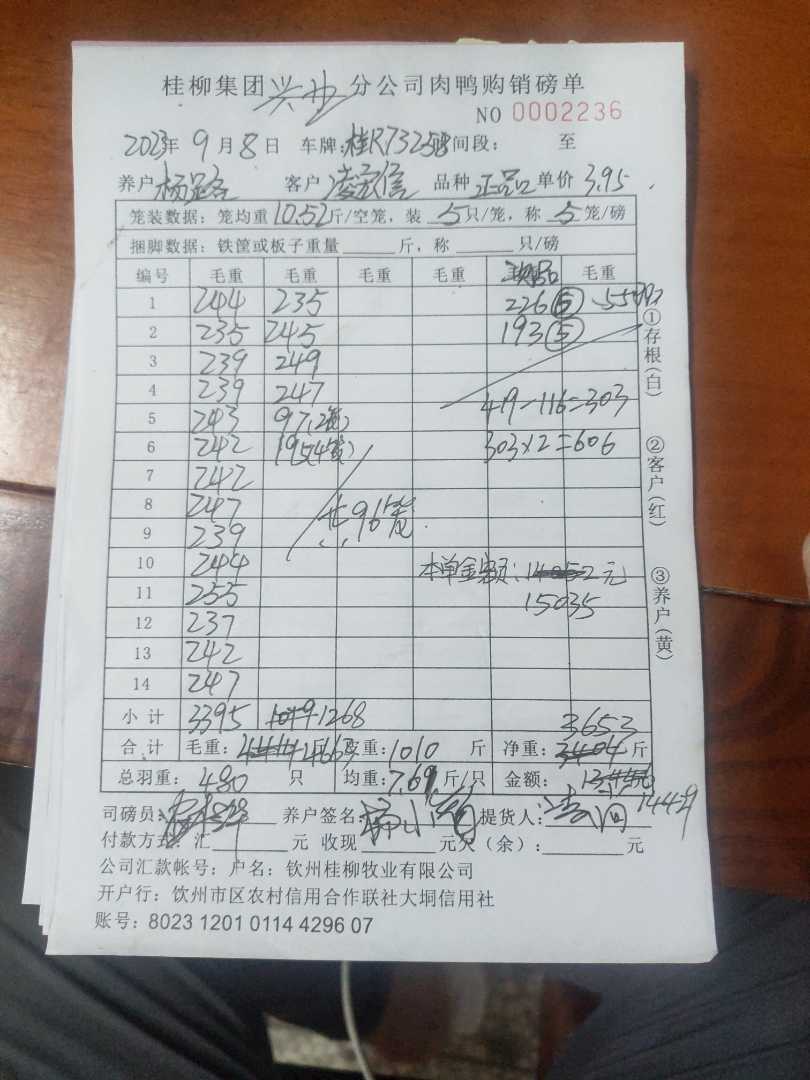 桂柳集团兴业分公司肉鸭购销磅单
NO 0002236
2023年9月8日 车牌:桂R73258 间段: 至
养户 客户 凌家信 品种 正品 单价 3.95
笼装数据: 笼均重10.52斤/空笼, 装 5只/笼, 称 5笼/磅
捆脚数据: 铁筐或板子重量 斤, 称 只/磅
编号 毛重 毛重 毛重 毛重 毛重
1 244 235 226⑤
2 235 245 193⑤
3 239 249
4 239 247
5 243 97(2笼) 419-116=303
6 242 195(4笼) 303×2=606
7 242
8 247 共96笼
9 239
10 244 本单金额: 元
11 255 15035
12 237
13 242
14 247
小计 3395 1268 3653
合计 毛重: 4663 皮重:1010 斤 净重: 斤
总羽重: 480 只 均重:7.61斤/只 金额:
14429
司磅员: 养户签名: 提货人:
付款方式: 汇 元 收现 元欠(余): 元
公司汇款帐号: 户名: 钦州桂柳牧业有限公司
开户行: 钦州市区农村信用合作联社大垌信用社
账号: 8023 1201 0114 4296 07
①存根(白)
②客户(红)
③养户(黄)